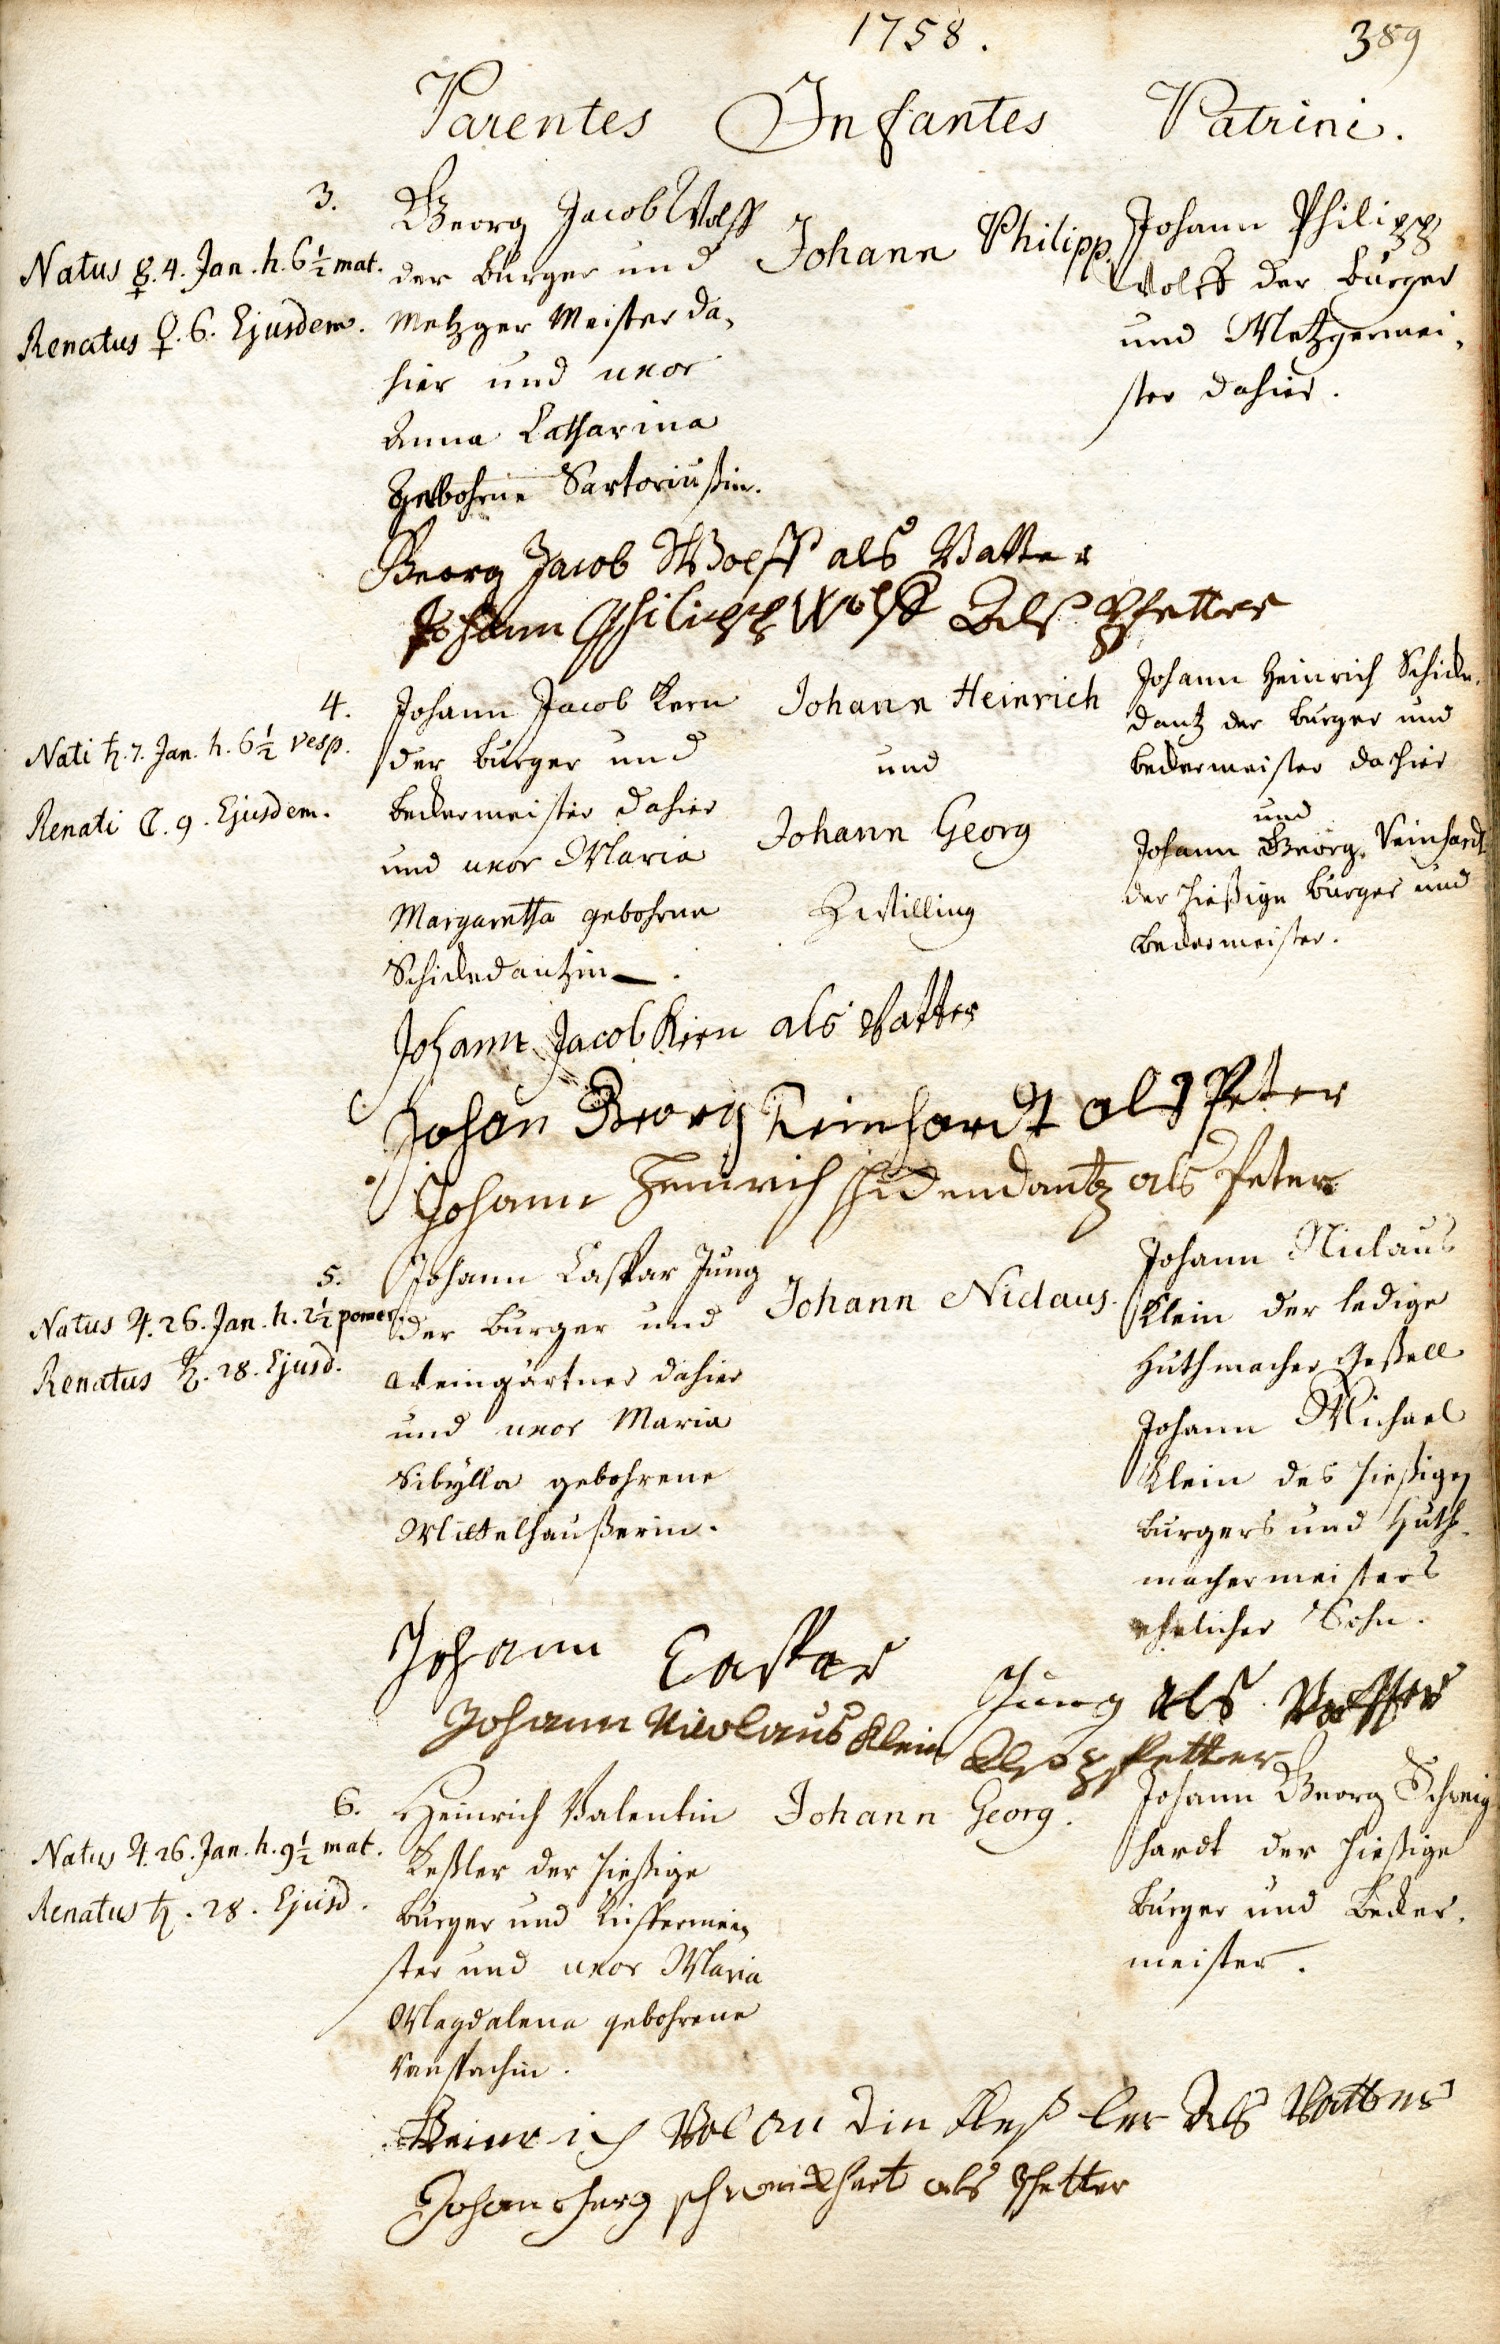 1758.
389
Parentes Infantes Patrini.
3.
Natus ☿. 4. Jan. h. 6 1/2 mat.
Renatus ♀. 6. Ejusdem.
Georg Jacob Wolff
der Burger und
Metzger Meister da,
hier und uxor
Anna Catharina
Gebohrne Sartoriußin.
Johann Philipp.
Johann Philipp
Wolff der Burger
und Metzgermei,
ster dahier.
Georg Jacob Wolff als Vatter
Johann Philipp Wolff Als Pfetter
4.
Nati ♄. 7. Jan. h. 6 1/2 vesp.
Renati ☾. 9. Ejusdem.
Johann Jacob Kern
der burger und
beckermeister dahier
und uxor Maria
Margaretha gebohrne
Schickedantzin.
Johann Heinrich
und
Johann Georg
Zwilling
Johann Heinrich Schicke,
dantz der burger und
beckermeister dahier
und
Johann Georg Reinhardt
der hießige burger und
beckermeister.
Johann Jacob Kern als Vatter
Johan Georg Reinhardt als Peter
Johann Heinrich schickendantz als Peter
5.
Natus ♃. 26. Jan. h. 2 1/2 pomer.
Renatus ♄. 28. Ejusd.
Johann Caspar Jung
der burger und
Weingärtner dahier
und uxor Maria
Sibÿlla gebohrene
Mittelhaußerin.
Johann Niclaus.
Johann Niclaus
Klein der ledige
Huthmacher Geßell
Johann Michael
Klein des hießigen
burgers und Huth-
machermeisters
ehelicher Sohn.
Johann Caspar Jung als Vatter
Johann Nicolaus Klein Alß Pfetter
6.
Natus ♃. 26. Jan. h. 9 1/2 mat.
Renatus ♄. 28. Ejusd.
Heinrich Valentin
Keßler der hießige
burger und Kiefermei,
ster und uxor Maria
Magdalena gebohrene
Johann Georg.
Johann Georg Schweig
hardt der hießige
burger und Becker,
meister.
Heinrich Vol an din Keß ler Als Vatter
Johan schweickhart als Pfetter